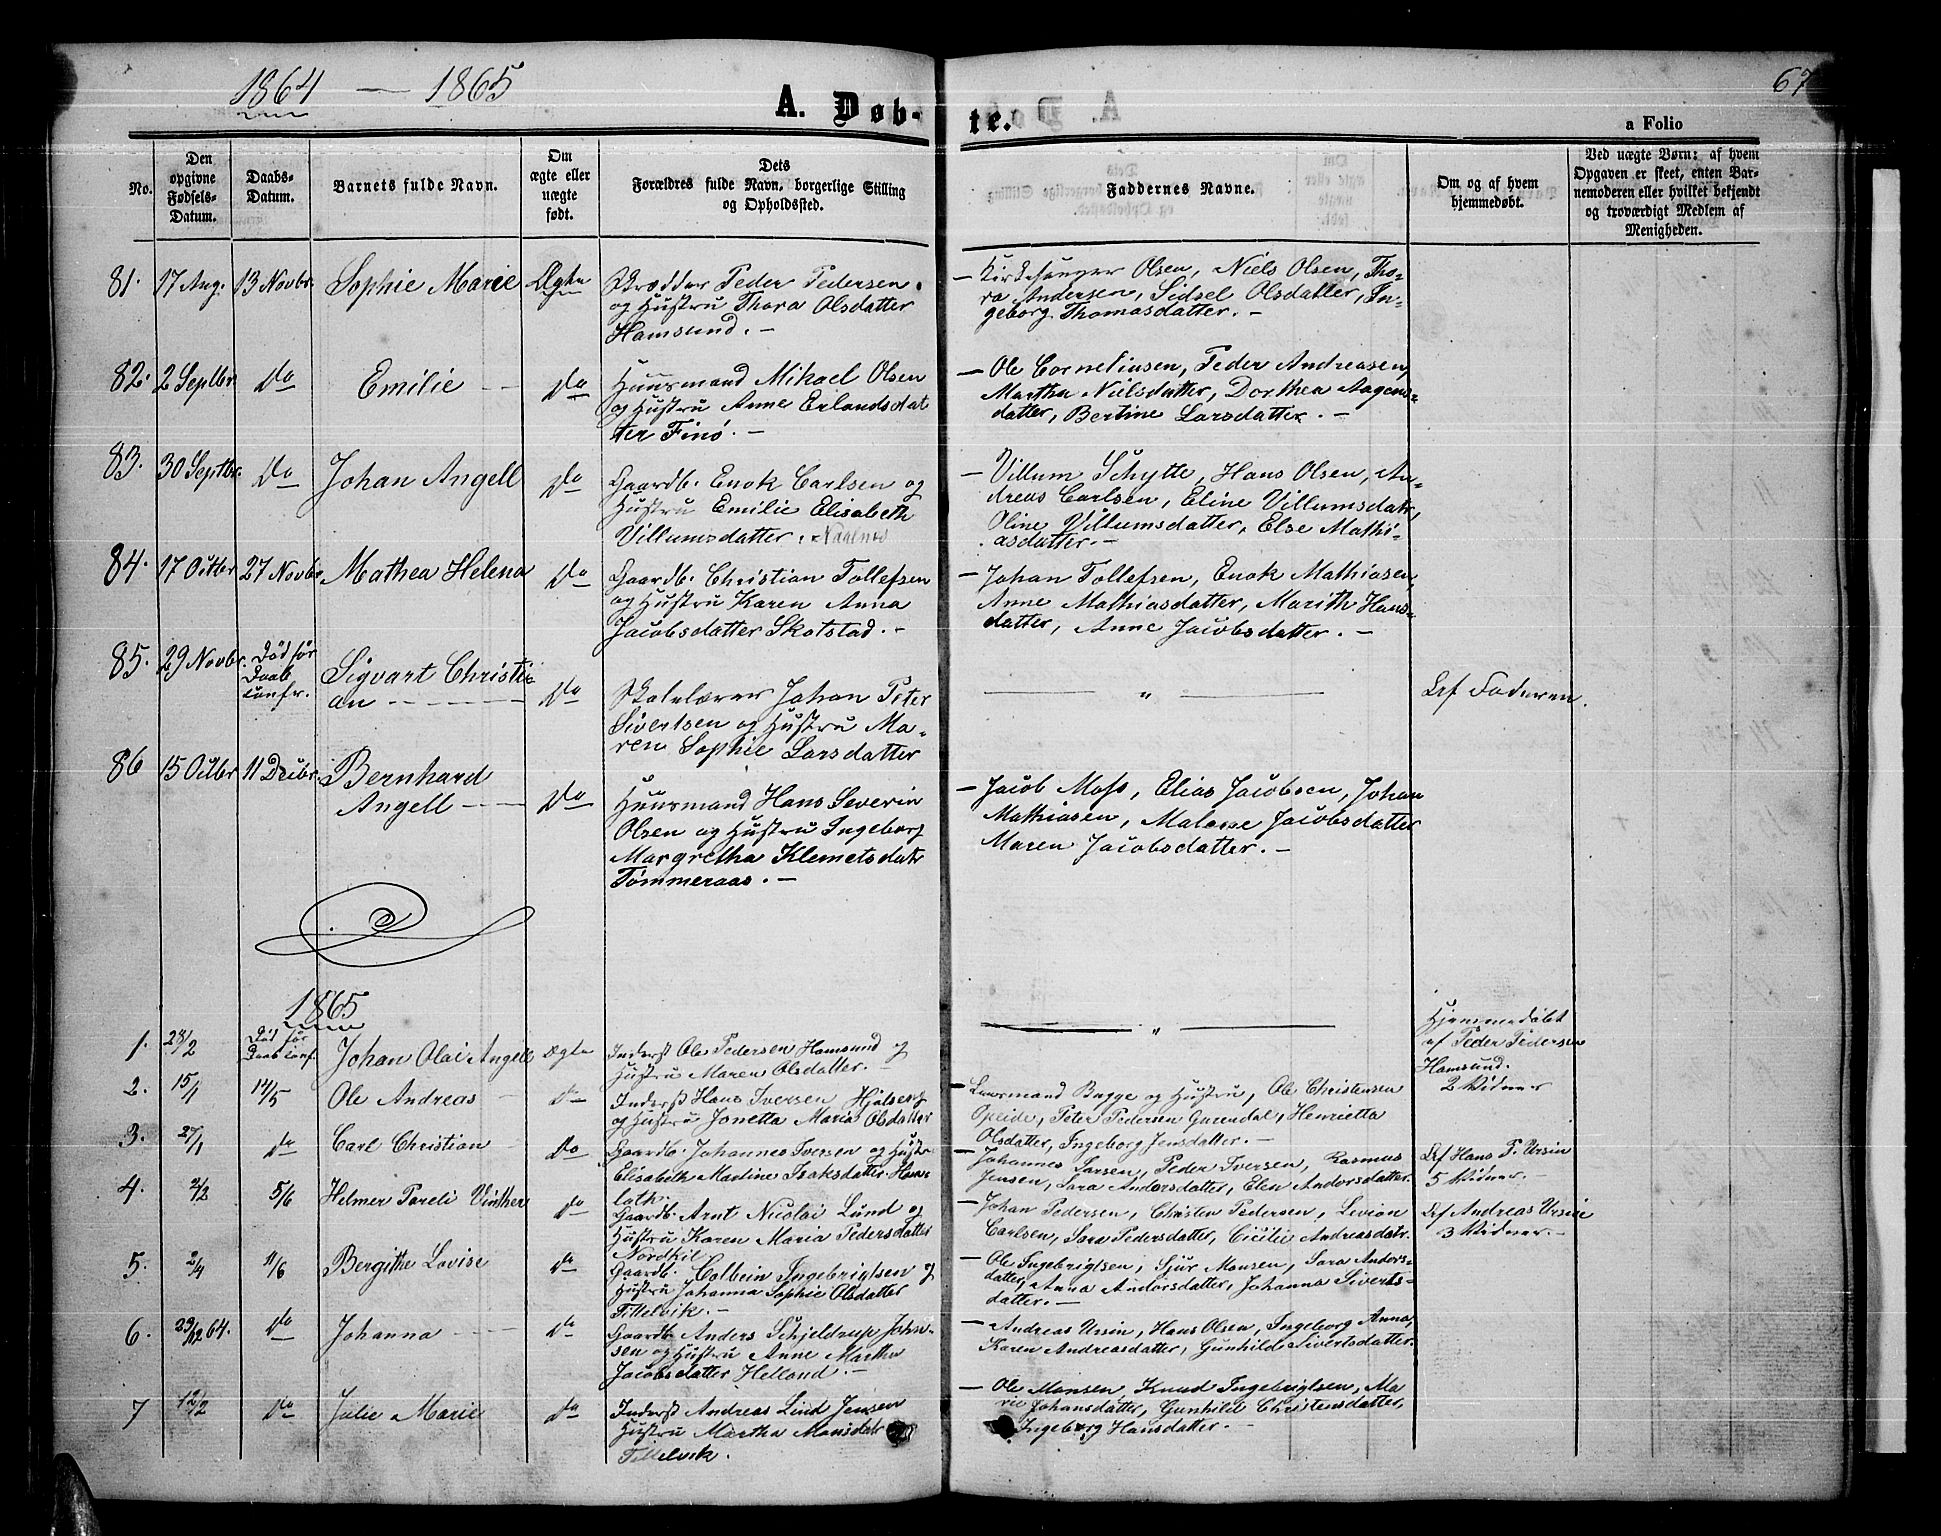 1864 — 1865
A. Døb-
te.
67
a Folio
No.
Den
opgivne
Fødsels-
Datum.
Daabs-
Datum.
Barnets fulde Navn.
Om
ægte eller
uægte
født.
Dets
Forældres fulde Navn, borgerlige Stilling
og Opholdssted.
Faddernes Navne.
Om og af hvem
hjemmedøbt.
Ved uægte Børn: af hvem
Opgaven er skeet, enten Bar-
nemoderen eller hvilket bekjendt
og troværdigt Medlem af
Menigheden.
81. 17 Aug. 13 Novbr. Sophie Marie Ægte
Skrædder Peder Pedersen
og Hustru Thora Olsdatter
Hamsund. —
— Kirkesanger Olsen, Niels Olsen, Tho-
ra Andersen, Sidsel Olsdatter, In-
geborg Thomasdatter. —
82. 2 Septbr Do Emilie — Do
Huusmand Mikael Olsen
og Hustru Anne Erlandsdat
ter Finö. —
— Ole Corneliusen, Peder Andreasen,
Martha Nielsdatter, Dorthea Aagens-
datter, Bertine Larsdatter. —
83. 30 Septbr. Do Johan Angell Do
Gaardb. Enok Carlsen og
Hustru Emilie Elisabeth
Villumsdatter.
— Villum Schytte, Hans Olsen, An-
dreas Carlsen, Eline Villumsdatr,
Oline Villumsdatter, Else Mathi-
asdatter. —
84. 17 Octbr 27 Novbr. Mathea Helena Do
Gaardb. Christian Tollefsen
og Hustru Karen Anna
Jacobsdatter Skotstad. —
— Johan Tollefsen, Enok Mathiasen,
Anne Mathiasdatter, Marith Hans-
datter, Anne Jacobsdatter. —
85. 29 Novbr. Död för
Daab
confr.
Sigvart Christi-
an — Do
Skolelærer Johan Peter
Sivertsen og Hustru Ma-
ren Sophie Larsdatter
— " —
Af Faderen.
86 15 Octbr 11 Decbr. Bernhard
Angell — Do
Huusmand Hans Severin
Olsen og Hustru Ingeborg
Margretha Klemetsdatr
Tömmeraas. —
— Jacob Moss, Elias Jacobsen, Johan
Mathiasen, Malene Jacobsdatter
Maren Jacobsdatter. —
1865
1. 28/2 Död för
Daab conf.
Johan Olai Angell Ægte
Inderst Ole Pedersen Hamsund og
Hustru Maren Olsdatter. —
— " —
Hjemmedöbt
af Peder Pedersen
Hamsund.
2 Vidner
2. 15/1 14/5 Ole Andreas — Do
Inderst Hans Iversen Hjelseng
og Hustru Jonetta Maria Olsdatter
— Lensmand Bugge og Hustru, Ole Christensen
Opeide, Peter Pedersen Guvendal, Henrietta
Olsdatter, Ingeborg Jensdatter. —
3. 27/1 do Carl Christian Do
Gaardb. Johannes Iversen og Hustr.
Elisabeth Martine Isaksdatter Hans-
loth.
— Johannes Larsen, Peder Iversen, Rasmus
Jensen, Sara Andorsdatter, Elen Andorsdatter.
Af Hans P. Ursin
5 Vidner. —
4. 2/2 5/6 Helmer Pareli Vinther do
Gaardb. Arnt Nicolai Lund og
Hustru Karen Maria Pedersdatter
Nordkil —
— Johan Pedersen, Christen Pedersen, Levion
Carlsen, Sara Pedersdatter, Cicilie Andreasdatr.
Af Andreas Ursin
3 Vidner. —
5. 2/4 11/6 Bergithe Lovise do
Gaardb. Colbein Ingebrigtsen og
Hustru Johanna Sophie Olsdatter
Tillelvik. —
— Ole Ingebrigtsen, Sjur Monsen, Sara Andors-
datter, Anna Andorsdatter, Johanna Siverts-
datter. —
6. 29/12 64. Do Johanna — do
Gaardb. Anders Schjeldrup John-
sen og Hustru Anne Martha
Jacobsdatter Helland. —
— Andreas Ursin, Hans Olsen, Ingeborg Anna,
Karen Andreasdatter, Gunhild Sivertsdatter.
7 12/2 Do Julie Marie do
Inderst Andreas Lind Jensen
Hustru Martha Monsdatr
Tillelvik.
— Ole Monsen, Knud Ingebrigtsen, Ma
rie Johansdatter, Gunhild Christensdatter,
Ingeborg Hansdatter. —